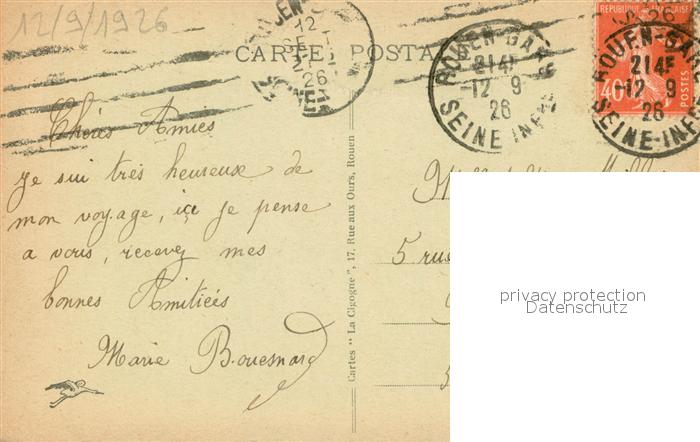 12/9/1926
CARTE POSTA
ROUEN-GARE
21 45
12 9
26
SEINE-INFRE
RÉPUBLIQUE FRANÇAISE
40
POSTES
ROUEN-GARE
21 45
12 9
26
SEINE-INFRE
12
26
Chères Amies
Je sui très heureuse de
mon voyage, ici je pense
a vous, recevez mes
bonnes Amitiées
Marie Bouesnard
Cartes " La Cigogne ", 17, Rue aux Ours, Rouen
5 rue
privacy protection
Datenschutz